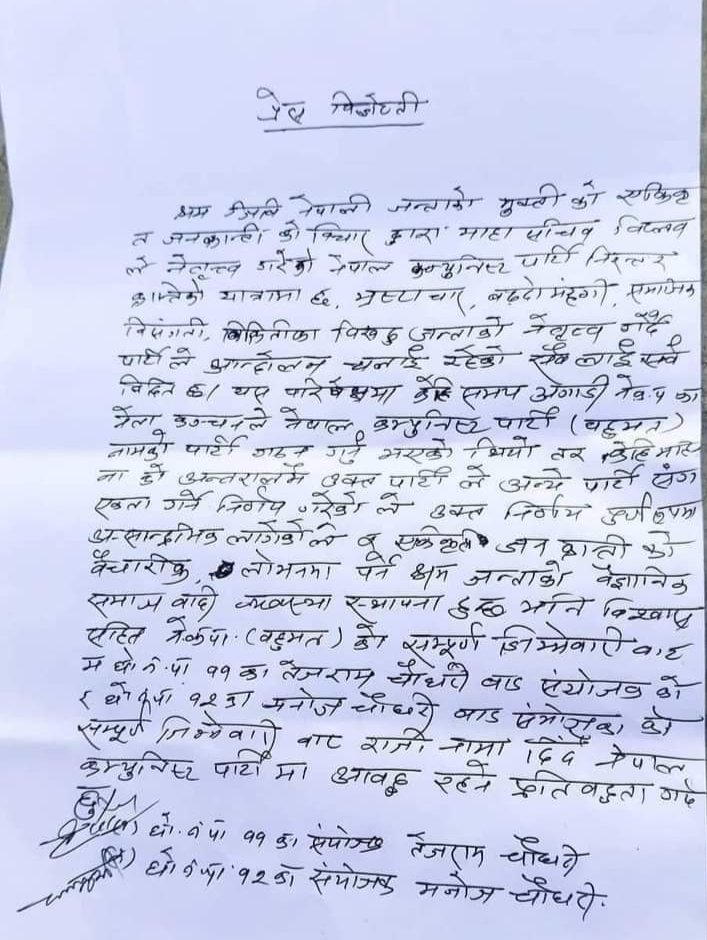 प्रेस विज्ञप्ती
श्रम जिवि नेपाली जन्ताको मुक्ती को एकिकृ
त जनक्रान्ती को विचार द्वारा माहा सचिव विप्लव
ले नेतृत्व गरेको नेपाल कम्युनिस्ट पार्टी निरन्तर
क्रान्तिको यात्रामा छ, भ्रस्टाचार, बढ्दो मंहगी, समाजिक
विसंगती, विकितीका विरुद्ध जन्ताको नेतृत्व गर्दै
पार्टी ले आन्दोलन चलाई रहेको सबै लाई सर्व
विदित छ। यस परिपेक्षमा केहि समय अगाडी ने.क.पा का
नेता कञ्चनले नेपाल कम्युनिस्ट पार्टी (बहुमत)
नामको पार्टी गठन गर्नु भएको थियो तर केहि महि
ना को अन्तरालमै उक्त पार्टी ले अन्य पार्टी संग
एकता गर्ने निर्णय गरेको ले उक्त निर्णय पुर्ण रुपमा
अ-सान्द्रभिक लागेको ले र एकिकृत जन क्रान्ती को
वैचारिक, लोभनमा पर्ने श्रम जन्ताको वैज्ञानिक
समाज वादी व्यवस्था स्थापना हुन्छ भनि विश्वास
सहित ने.क.पा. (बहुमत) को सम्पूर्ण जिम्मेवारी बाट
म घो.न.पा ११ का तेजराम चौधरी वाड संयोजक को
र घो.न.पा १२ का मनोज चौधरी वाड संयोजक को
सम्पूर्ण जिम्मेवारी बाट राजी नामा दिदै नेपाल
कम्युनिस्ट पार्टी मा आवद्ध रहने प्रतिवद्धता गर्द
छु।
घो.न.पा ११ का संयोजक तेजराम चौधरी
घो.न.पा १२ का संयोजक मनोज चौधरी.